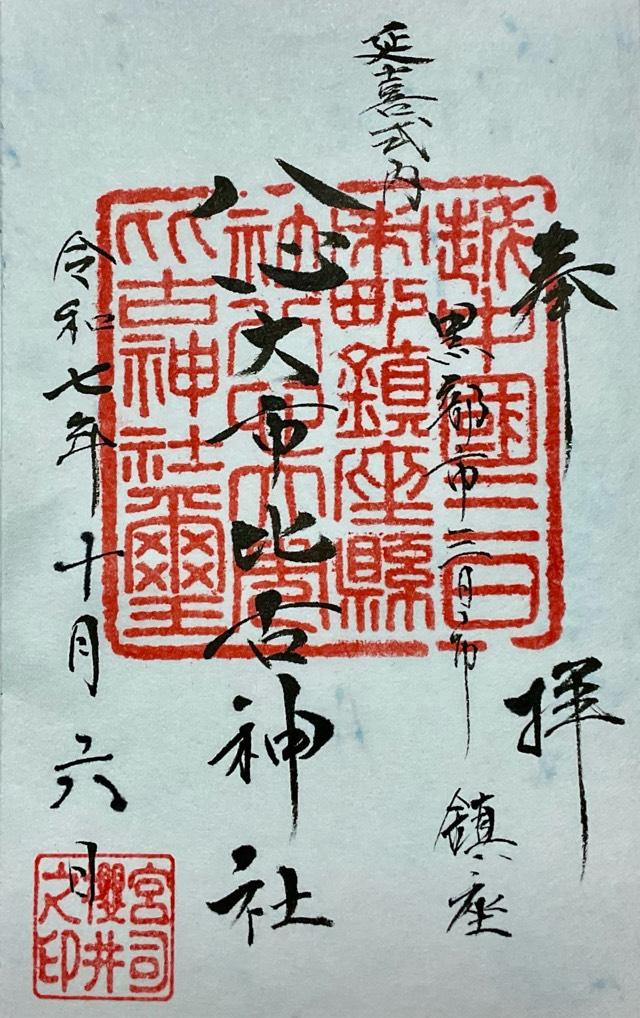 奉拝
延喜式内
黒部市三日市 鎮座
八心大市比古神社
令和七年十月六日
越中國三日
市町鎮座縣
社八心大市
比古神社璽
宮司
櫻井
之印